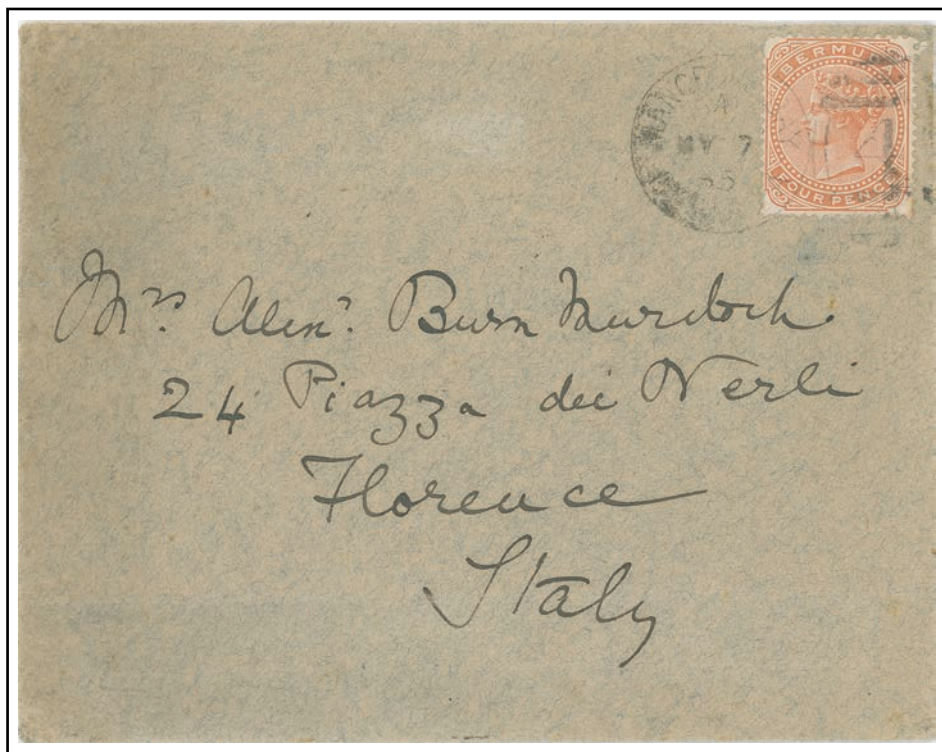 BERMUDA
FOUR PENCE
MY 7
Mrs. Alexr. Burn Murdoch
24 Piazza dei Nerli
Florence
Italy